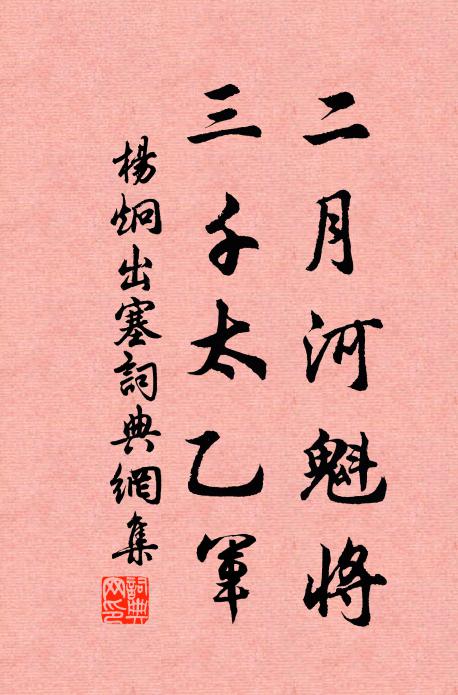 二月河魁將
三千太乙軍
楊炯出塞詞典網集
詞典網印